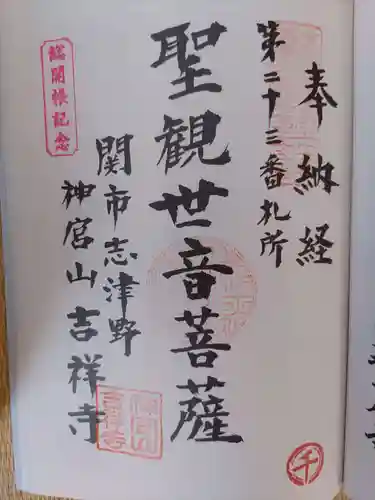 奉納経
第二十三番札所
聖観世音菩薩
関市志津野
神宮山吉祥寺
総開帳記念
千